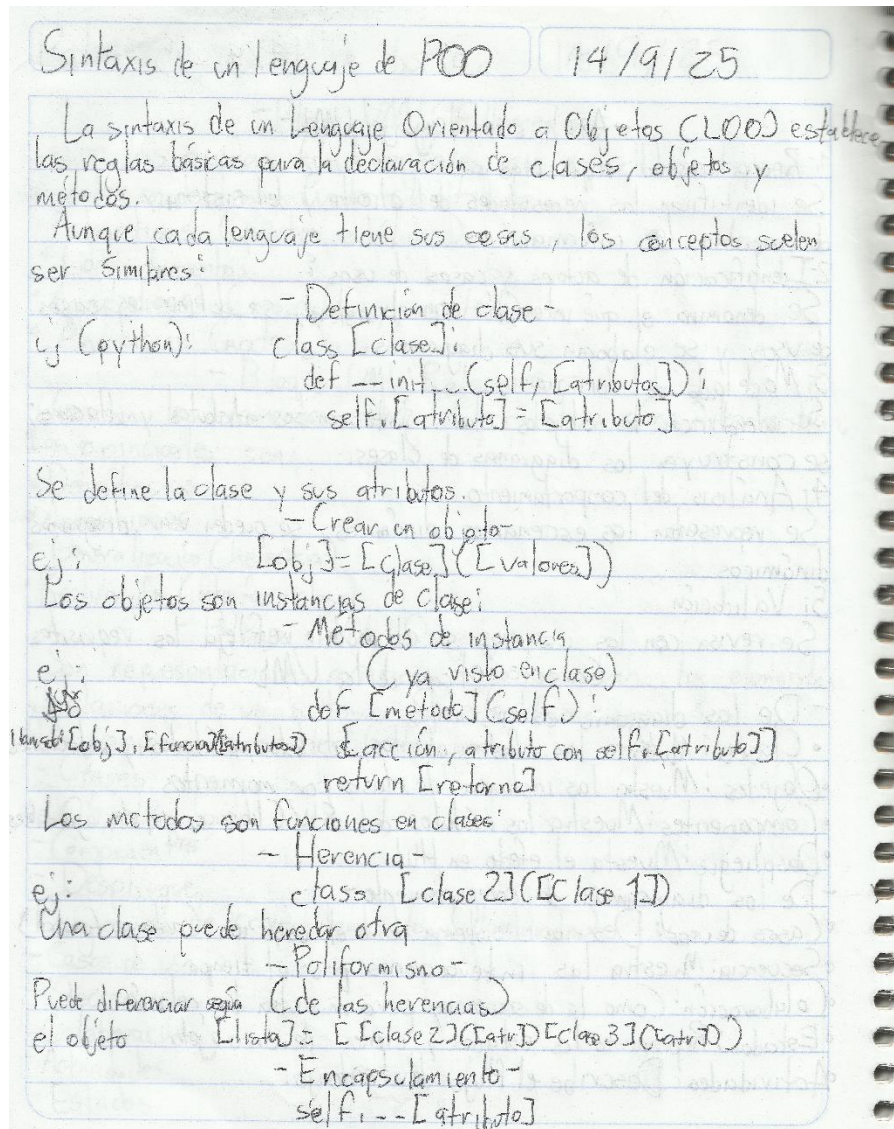 Sintaxis de un lenguaje de POO 14/9/25
La sintaxis de un Lenguaje Orientado a Objetos (LOO) establece
las reglas básicas para la declaración de clases, objetos y
métodos.
Aunque cada lenguaje tiene sus cosas, los conceptos suelen
ser similares:
- Definición de clase -
ej (python): class [clase]:
def __init__(self, [atributos]):
self.[atributo] = [atributo]
Se define la clase y sus atributos.
- Crear un objeto -
ej: [obj] = [clase]([valores])
Los objetos son instancias de clase:
- Métodos de instancia
ej: (ya visto en clase)
def [metodo](self):
[obj].[funcion]([atributos]) [acción, atributo con self.[atributo]]
return [retorno]
Los metodos son funciones en clases:
- Herencia -
ej: class [clase 2]([Clase 1])
Una clase puede heredar otra
- Poliformismo -
Puede diferenciar según (de las herencias)
el objeto [lista] = [[clase 2]([atr])[clase 3]([atr]))
- Encapsulamiento -
self.__[atributo]